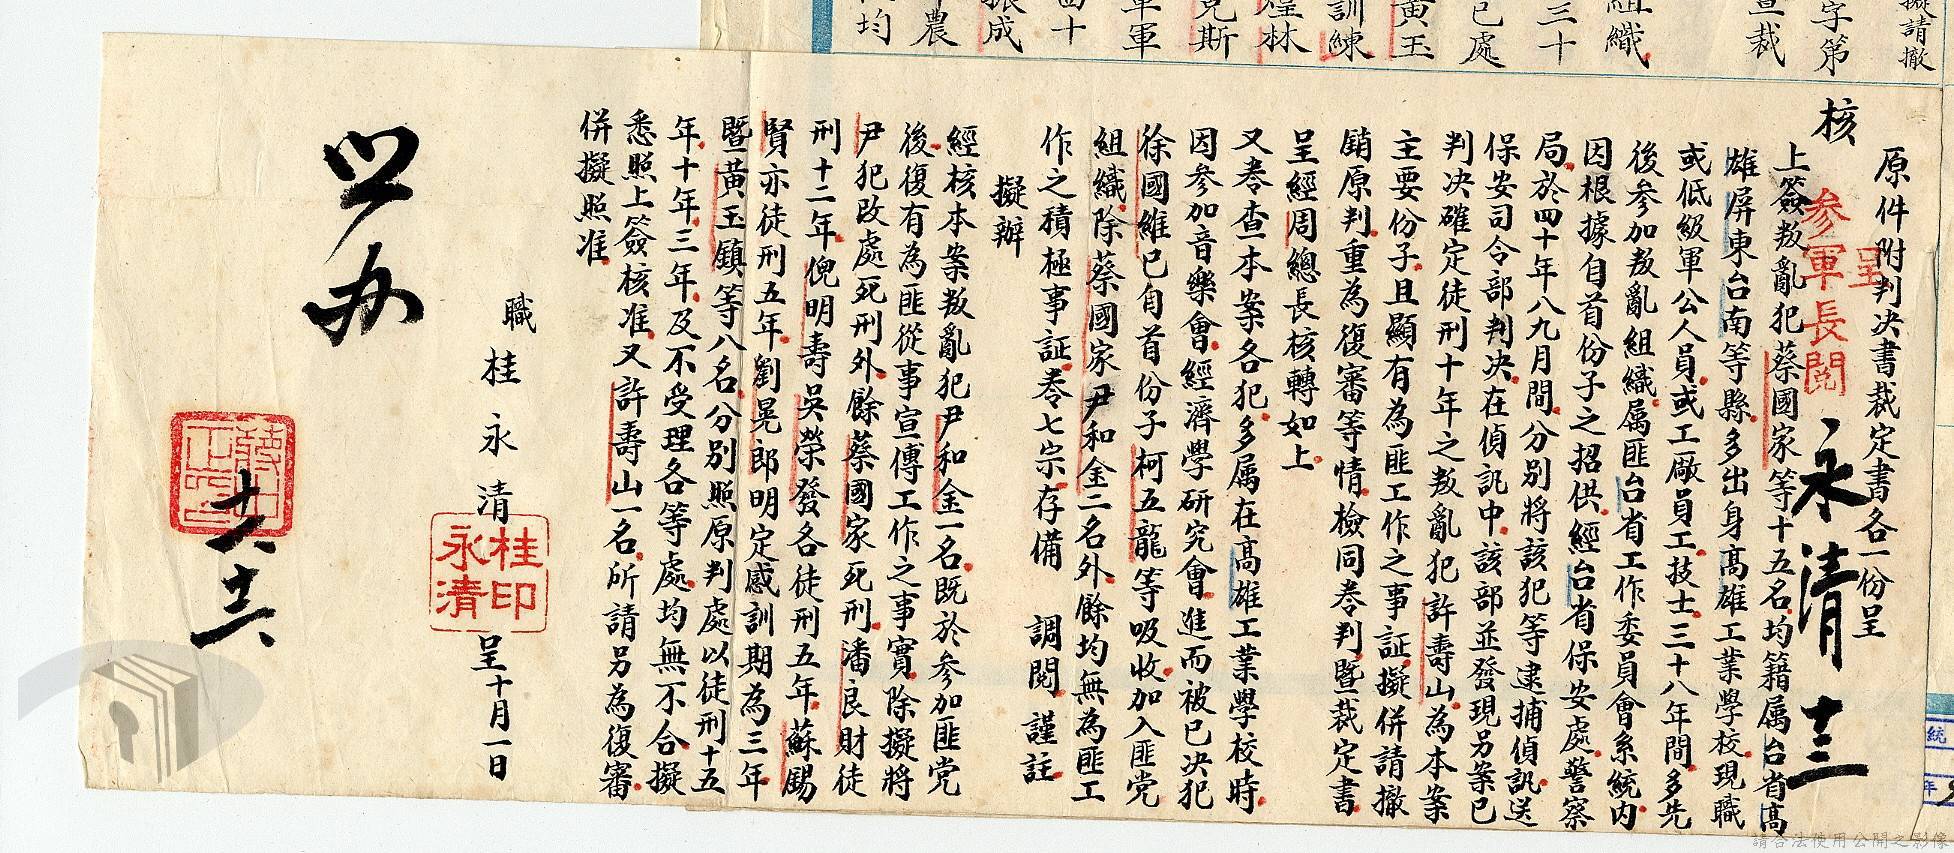 擬請撤
字第
宣裁
組織
三十
已處
黃玉
訓練
煌林
克斯
軍軍
四十
振成
農
均
核
原件附判决書裁定書各一份呈
呈
參軍長閱
永清 十三
上簽叛亂犯蔡國家等十五名均籍属台省髙
雄屏東台南等縣多出身髙雄工業学校現職
或低級軍公人員或工廠員工技士三十八年間多先
後參加叛亂組織属匪台省工作委員會系統内
因根據自首份子之招供經台省保安處警察
局於四十年八九月間分别將該犯等逮捕偵訊送
保安司令部判决在偵訊中該部並發現另案已
判决確定徒刑十年之叛亂犯許壽山為本案
主要份子且顯有為匪工作之事証擬併請撤
銷原判重為復審等情檢同卷判暨裁定書
呈經周總長核轉如上
又卷查本案各犯多属在髙雄工業學校時
因參加音樂會經濟學研究會進而被已决犯
徐國維已自首份子柯五龍等吸收加入匪党
組織除蔡國家尹和金二名外餘均無為匪工
作之積極事証卷七宗存備 調閱謹註
擬辦
經核本案叛亂犯尹和金一名既於參加匪党
後復有為匪從事宣傳工作之事實除擬將
尹犯改處死刑外餘蔡國家死刑潘良財徒
刑十二年倪明壽吳榮發各徒刑五年蘇賜
賢亦徒刑五年劉晃郎明定感訓期為三年
暨黃玉鎮等八名分别照原判處以徒刑十五
年十年三年及不受理各等處均無不合擬
悉照上簽核准又許壽山一名所請另為復審
併擬照准
職桂永清
桂永清印
呈十月一日
照办
蔣中正印
請合法使用公開之影像